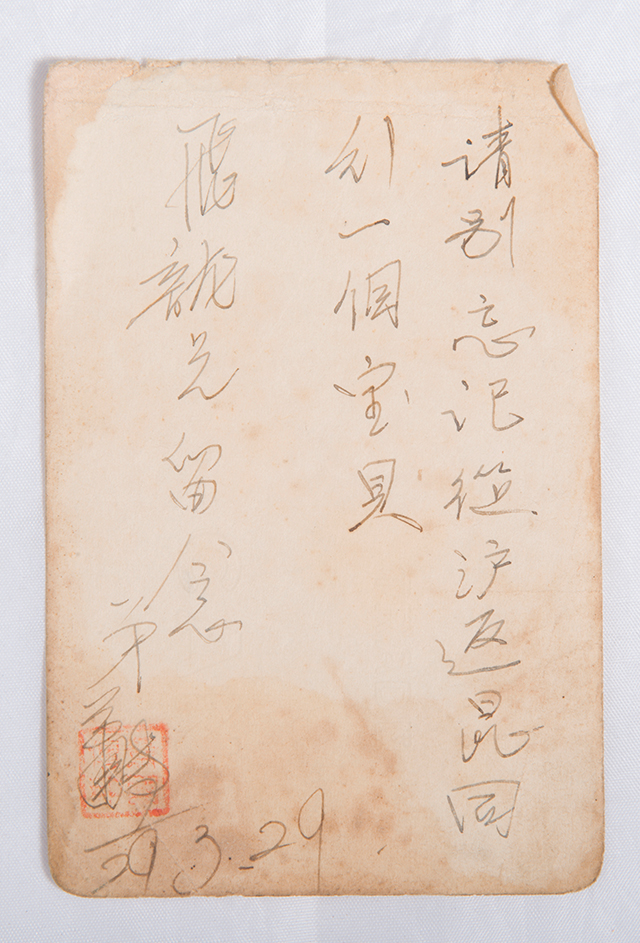 请别忘记從沪返昆同
一個宝貝
飛龍兄留念
弟
3.29